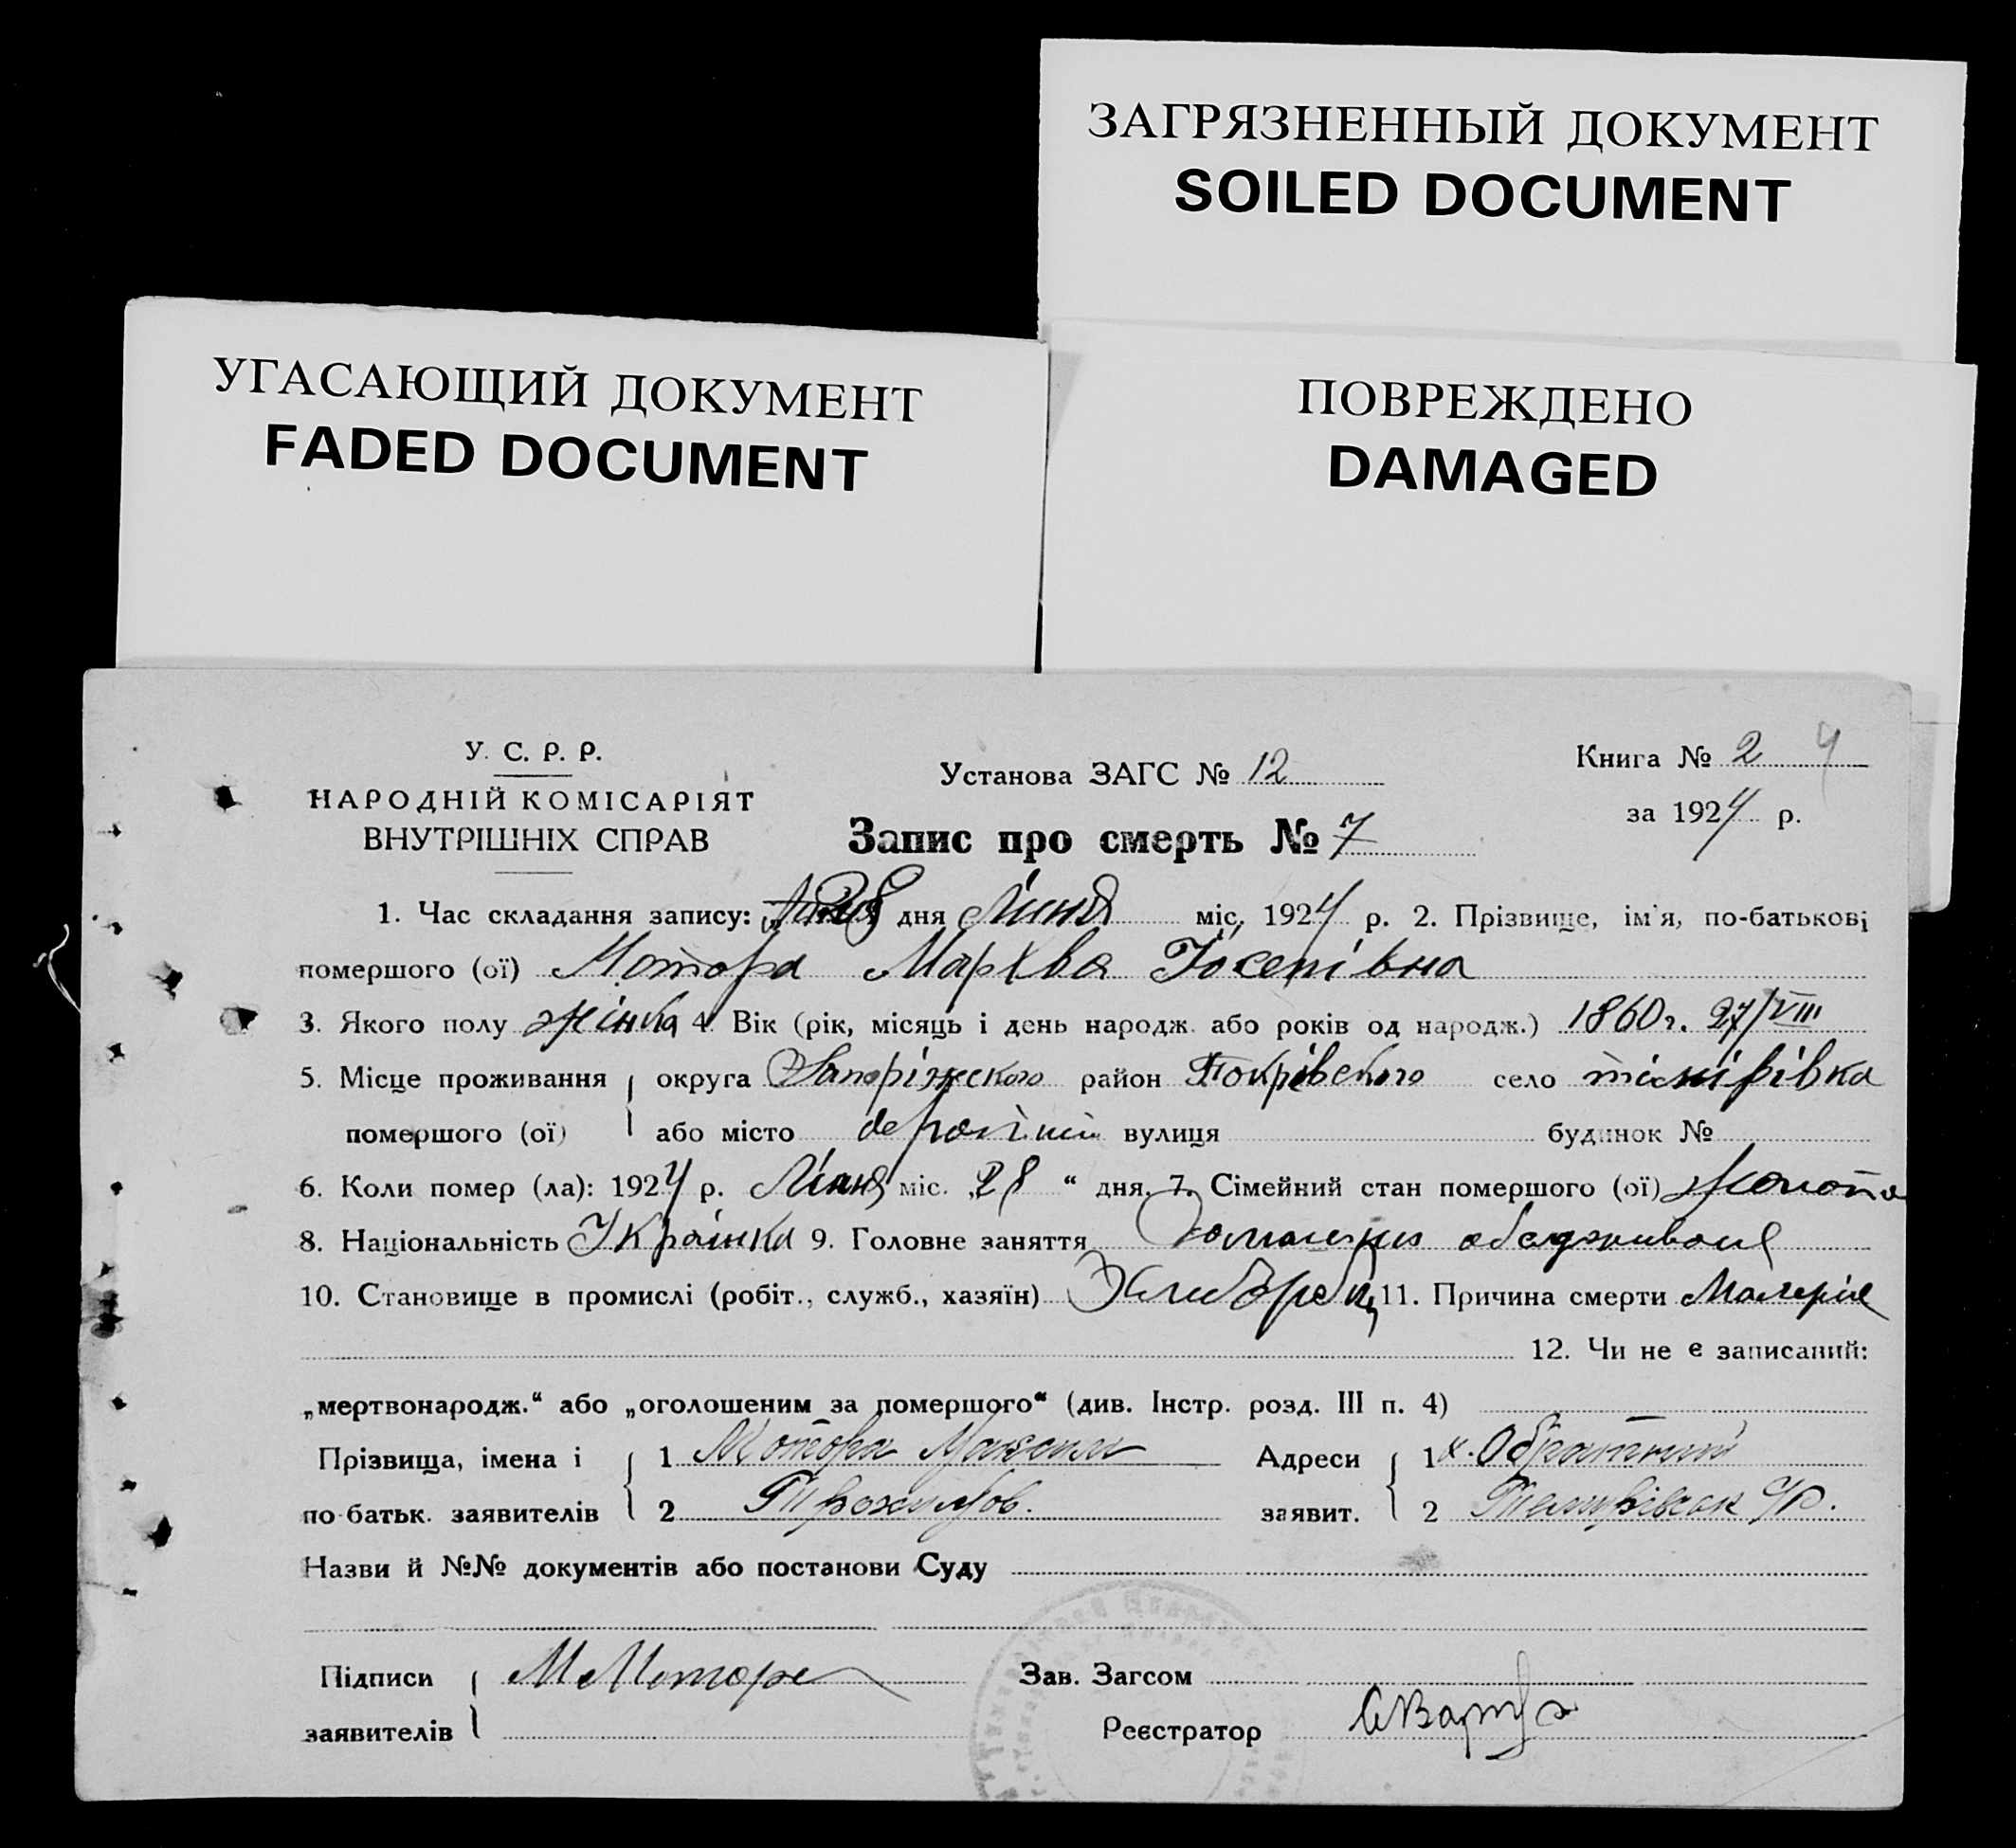 ЗАГРЯЗНЕННЫЙ ДОКУМЕНТ
SOILED DOCUMENT
УГАСАЮЩИЙ ДОКУМЕНТ
FADED DOCUMENT
ПОВРЕЖДЕНО
DAMAGED
У. С. Р. Р.
НАРОДНІЙ КОМІСАРІЯТ
ВНУТРІШНІХ СПРАВ
Установа ЗАГС № 12
Книга № 2 4
за 1924 р.
Запис про смерть № 7
1. Час складання запису: 28 дня Липня міс. 1924 р. 2. Прізвище, ім'я, по-батькові
помершого (ої) Мотора Мархва Йосепівна
3. Якого полу жінка 4. Вік (рік, місяць і день народж. або років од народж.) 1860 г. 27/VIII
5. Місце проживання округа Запоріжского район Покрівского село
помершого (ої) або місто вулиця будинок №
6. Коли помер (ла): 1924 р. міс. „28“ дня. 7. Сімейний стан помершого (ої)
8. Національність Українка 9. Головне заняття
10. Становище в промислі (робіт., служб., хазяїн) Хлибороб 11. Причина смерти Малерія
12. Чи не є записаний:
„мертвонародж.“ або „оголошеним за помершого“ (див. Інстр. розд. III п. 4)
Прізвища, імена і 1 Мотора Максим Адреси 1 х.
по батьк. заявителів 2 заявит. 2
Назви й №№ документів або постанови Суду
Підписи М Мотора Зав. Загсом
заявителів Реєстратор